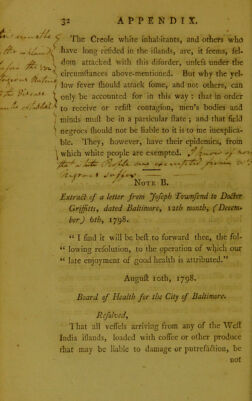 32 APPENDIX.
The Creole white inhabitants, and others who
have long resided in the islands, are, it seems, sel-
dom attacked with this disorder, unless under the
circumstances above-mentioned. But why the yel-
low fever should attack some, and not others, can
only be accounted for in this way : that in order
to receive or resist contagion, men's bodies and
minds must be in a particular state ; and that field
negroes should not be liable to it is to me inexplica-
ble. They, however, have their epidemics, from
which white people are exempted.
NOTE B.
Extract of a letter from Joseph Townsend to Doctor
Griffitts, dated Baltimore, 12th month, (Decem-
ber) 6th, 1798.
“ I find it will be best to forward thee, the fol-
“ lowing resolution, to the operation of which our
“ late enjoyment of good health is attributed.”
August 10th, 1798.
Board of Health for the City of Baltimore.
Resolved,
That all vessels arriving from any of the West
India islands, loaded with coffee or other produce
that may be liable to damage or putrefaction, be
not